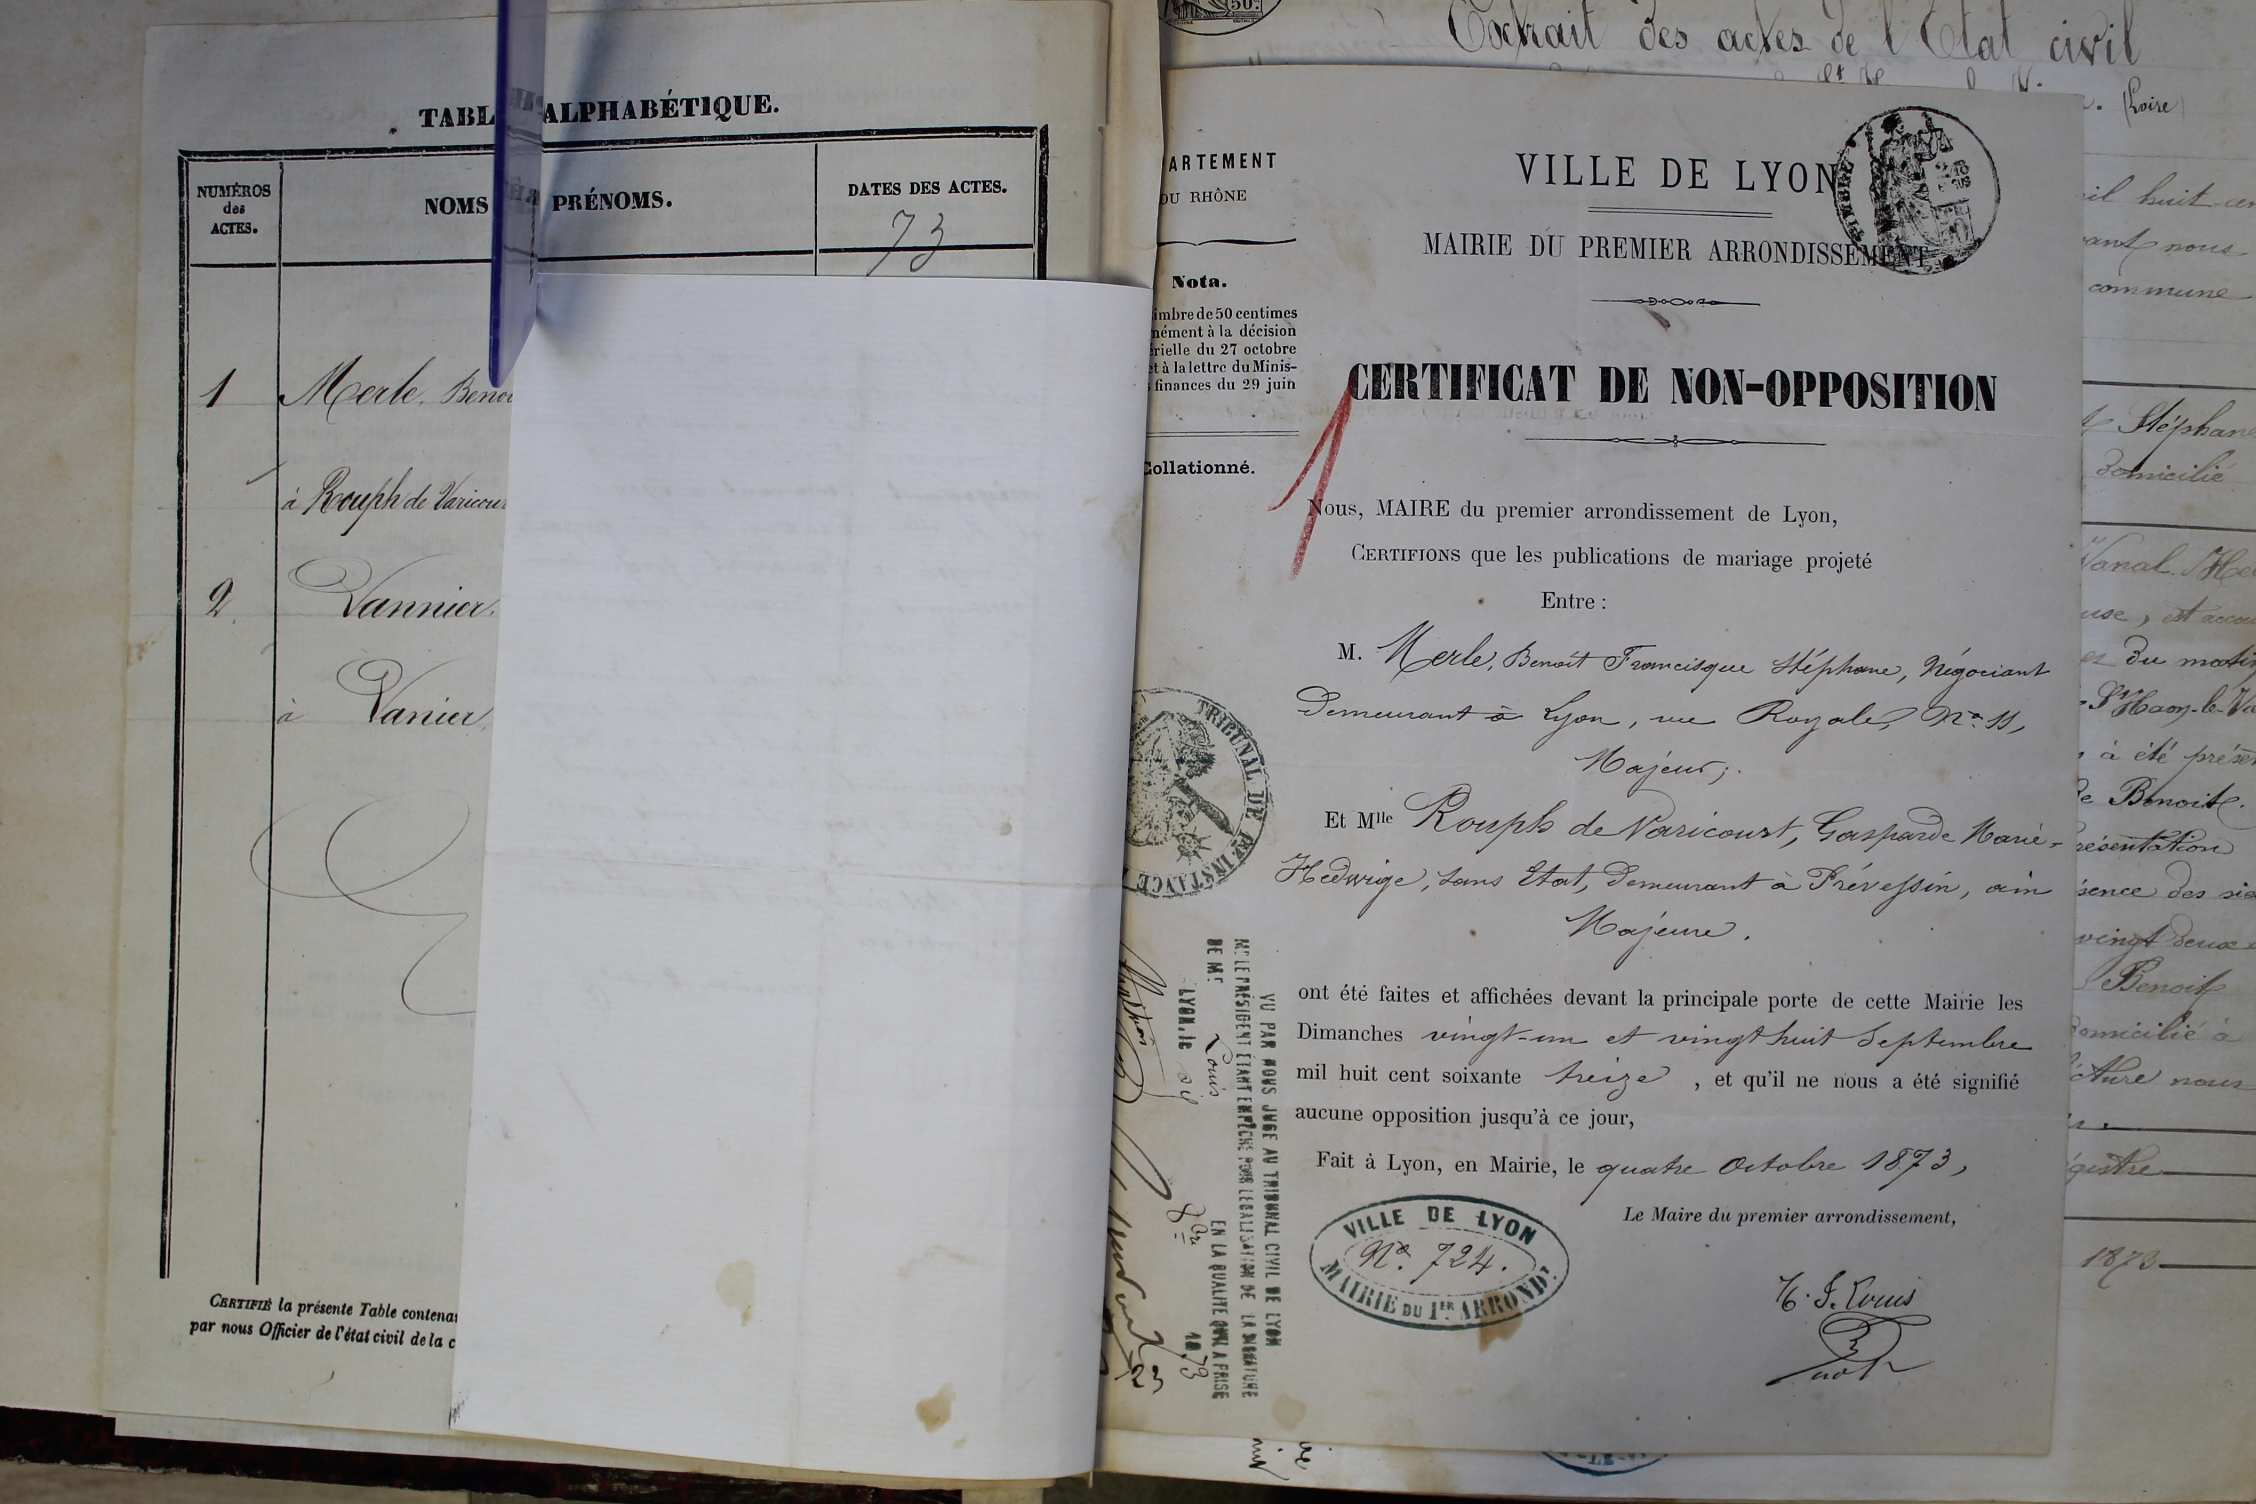 TABL ALPHABÉTIQUE.
NUMÉROS
des
ACTES.
NOMS PRÉNOMS.
DATES DES ACTES.
73
1 Merle, Benoi
à Rouph de Varicour
2. Vannier,
à Vanier,
CERTIFIÉ la présente Table contena
par nous Officier de l'état civil de la c
Extrait des actes de l'Etat civil
(Loire)
ARTEMENT
DU RHÔNE
Nota.
imbre de 50 centimes
mément à la décision
érielle du 27 octobre
et à la lettre du Minis-
finances du 29 juin
Collationné.
TRIBUNAL DE 1RE INSTANCE
VU PAR NOUS JUGE AU TRIBUNAL CIVIL DE LYON
MR LE PRÉSIDENT ÉTANT EMPÊCHÉ POUR LEGALISATION DE LA SIGNATURE
DE MR Louis EN LA QUALITÉ QU'IL A PRISE
LYON, le 8bre 1873
VILLE DE LYON
TIMBRE
MAIRIE DU PREMIER ARRONDISSEMENT
CERTIFICAT DE NON-OPPOSITION
1
Nous, MAIRE du premier arrondissement de Lyon,
CERTIFIONS que les publications de mariage projeté
Entre :
M. Merle, Benoît Francisque Stéphane, Négociant
Demeurant à Lyon, rue Royale, No. 11,
Majeur;.
Et Mlle Rouph de Varicourt, Gasparde Marie-
Hedwige, sans Etat, Demeurant à Prévessin, ain
Majeure.
ont été faites et affichées devant la principale porte de cette Mairie les
Dimanches vingt-un et vingt huit Septembre
mil huit cent soixante treize, et qu'il ne nous a été signifié
aucune opposition jusqu'à ce jour,
Fait à Lyon, en Mairie, le quatre Octobre 1873,
Le Maire du premier arrondissement,
VILLE DE LYON
No. 724.
MAIRIE DU 1ER ARRONDT
Louis
huit-cen
nous
commune
Stéphane
Domicilié
Vanal
use, est accou
du matin
St Haon-le-V
à été présen
De Benoit.
résentation
sence des
vingt deux
Benoit
omicilié à
cture nous
gistre
1873